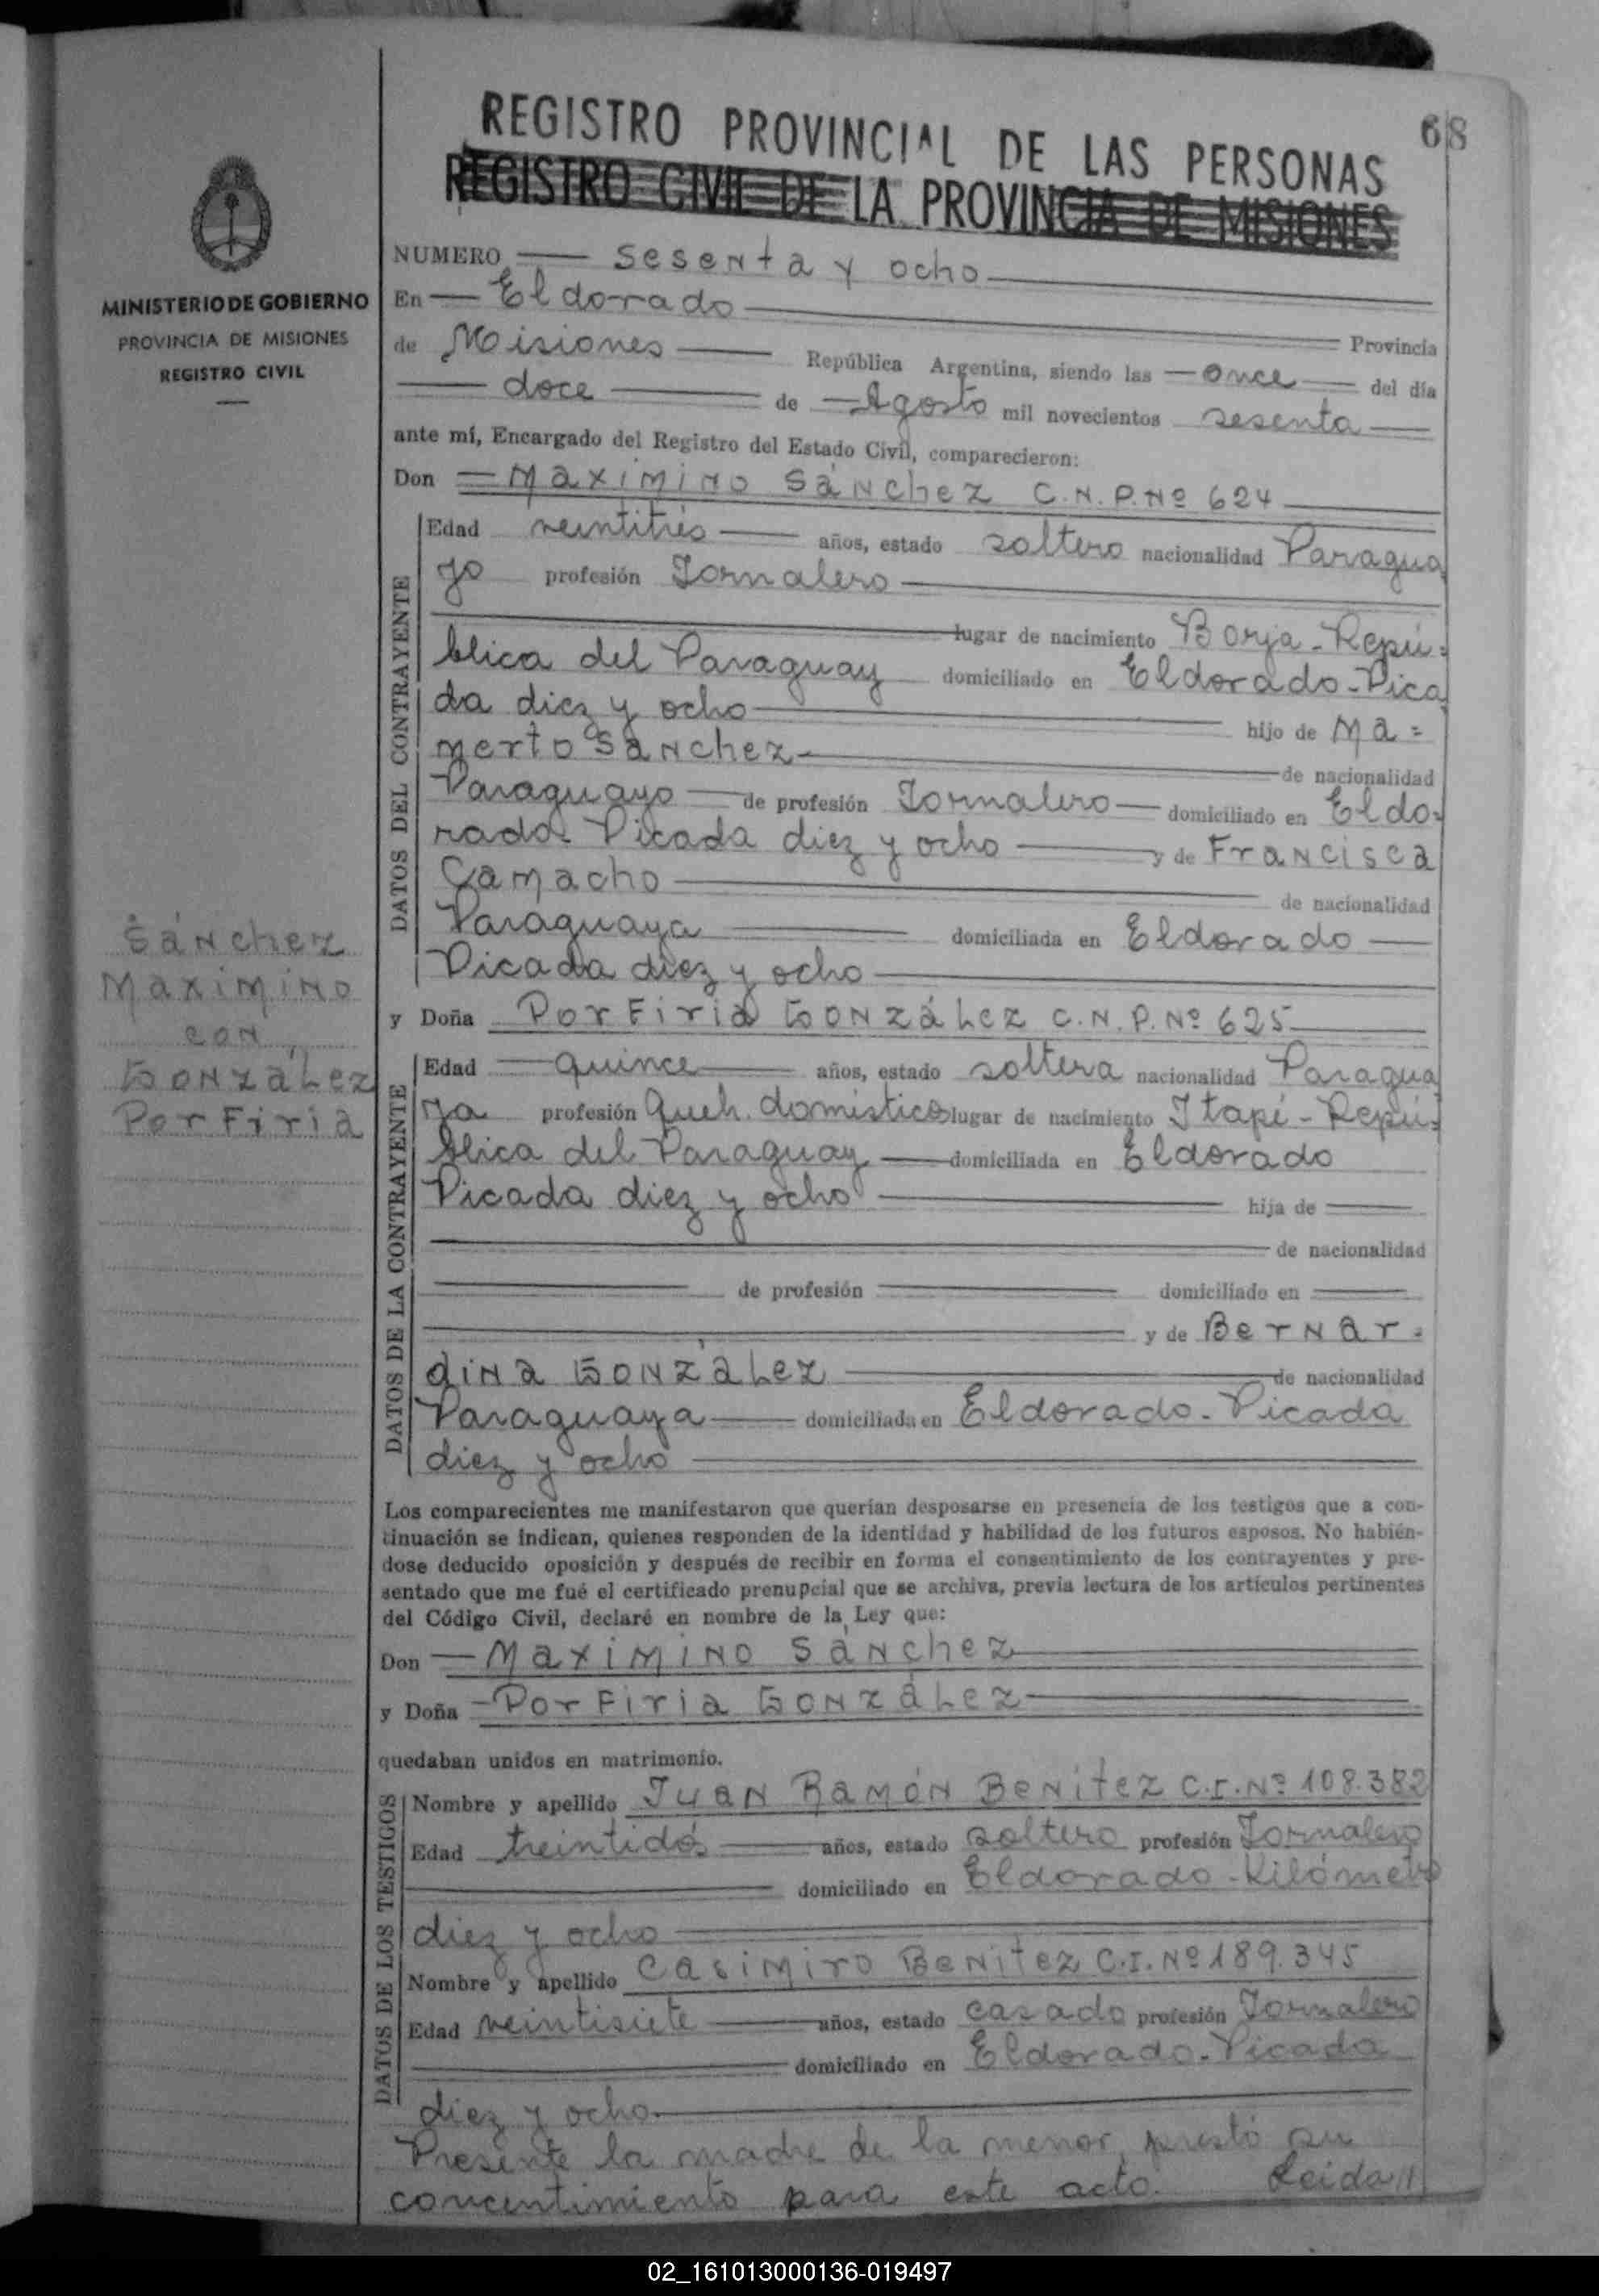 68
REGISTRO PROVINCIAL DE LAS PERSONAS
REGISTRO CIVIL DE LA PROVINCIA DE MISIONES
MINISTERIO DE GOBIERNO
PROVINCIA DE MISIONES
REGISTRO CIVIL
Sánchez
Maximino
con
González
Porfiria
NUMERO sesenta y ocho
En Eldorado
Provincia
de Misiones República Argentina, siendo las once del día
doce de Agosto mil novecientos sesenta
ante mí, Encargado del Registro del Estado Civil, comparecieron:
Don Maximino Sánchez C.N.P.Nº 624
DATOS DEL CONTRAYENTE
Edad veintitrés años, estado soltero nacionalidad Paragua
yo profesión Jornalero
lugar de nacimiento Borja-Repú=
blica del Paraguay domiciliado en Eldorado-Pica
da diez y ocho hijo de Ma=
merto Sánchez de nacionalidad
Paraguayo de profesión Jornalero domiciliado en Eldo-
rado Picada diez y ocho y de Francisca
Camacho de nacionalidad
Paraguaya domiciliada en Eldorado
Picada diez y ocho
y Doña Porfiria González C.N.P.Nº 625
DATOS DE LA CONTRAYENTE
Edad quince años, estado soltera nacionalidad Paragua
ya profesión Queh. domésticos lugar de nacimiento Itapé-Repú=
blica del Paraguay domiciliada en Eldorado
Picada diez y ocho hija de
de nacionalidad
de profesión domiciliado en
y de Bernar=
dina González de nacionalidad
Paraguaya domiciliada en Eldorado-Picada
diez y ocho
Los comparecientes me manifestaron que querían desposarse en presencia de los testigos que a con-
tinuación se indican, quienes responden de la identidad y habilidad de los futuros esposos. No habién-
dose deducido oposición y después de recibir en forma el consentimiento de los contrayentes y pre-
sentado que me fué el certificado prenupcial que se archiva, previa lectura de los artículos pertinentes
del Código Civil, declaré en nombre de la Ley que:
Don Maximino Sánchez
y Doña Porfiria González
quedaban unidos en matrimonio.
DATOS DE LOS TESTIGOS
Nombre y apellido Juan Ramón Benítez C.I.Nº 108.382
Edad treintidós años, estado soltero profesión Jornalero
domiciliado en Eldorado-Kilómetro
diez y ocho
Nombre y apellido Casimiro Benítez C.I.Nº 189.345
Edad veintisiete años, estado casado profesión Jornalero
domiciliado en Eldorado-Picada
diez y ocho.
Presente la madre de la menor, prestó su
concentimiento para este acto. Leida//
02_161013000136-019497